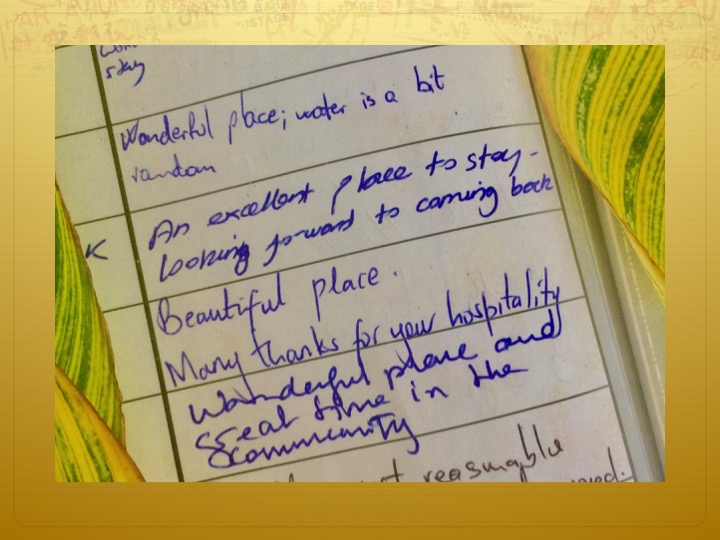 stay
Wonderful place; water is a bit
random
K
An excellent place to stay-
looking forward to coming back
Beautiful place.
Many thanks for your hospitality
Wonderful place and
great time in the
community
reasonable